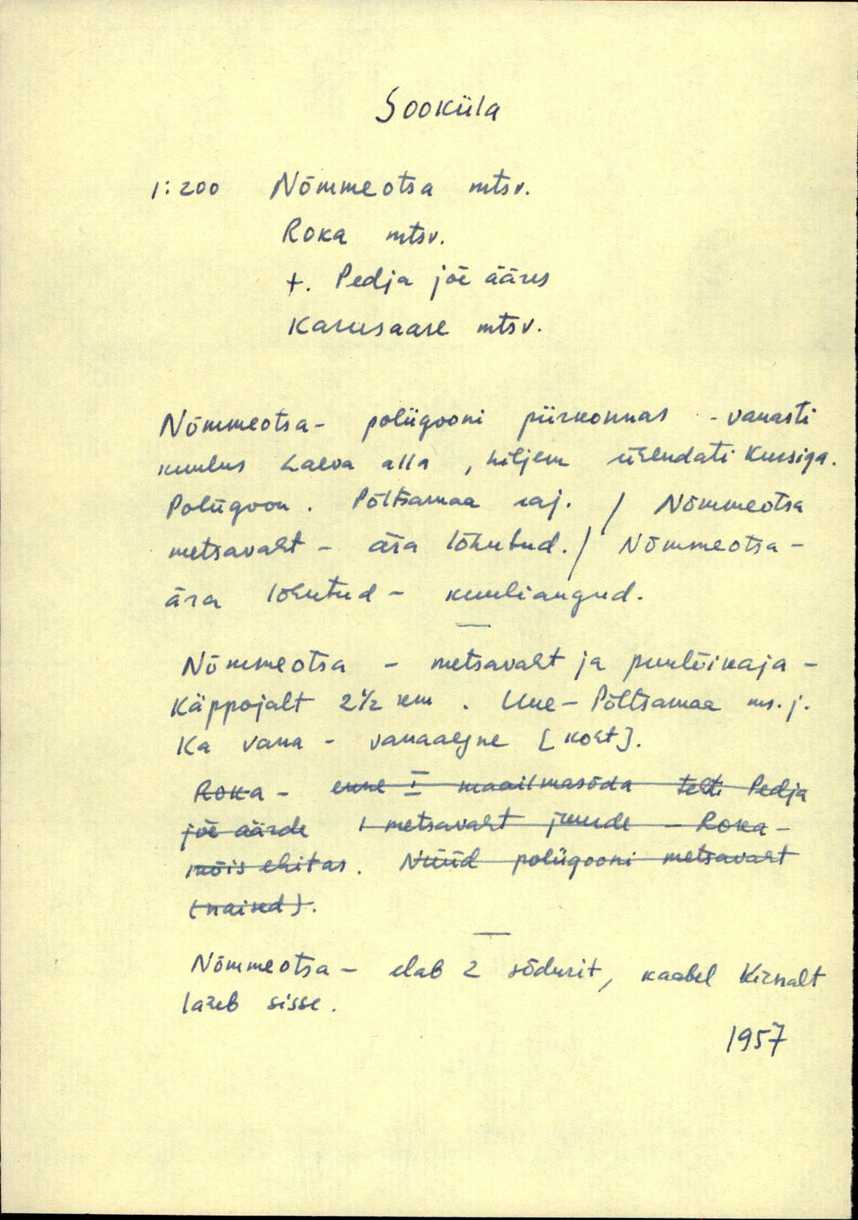 Sooküla
1:200 Nõmmeotsa mtsv.
Roka mtsv.
+. Pedja jõe ääres
Karusaare mtsv.
Nõmmeotsa- polügooni piirkonnas - vanasti
kuulus Laeva alla, hiljem ühendati Kursiga.
Polügoon. Põltsamaa raj. / Nõmmeotsa
metsavaht - ära lõhutud. / Nõmmeotsa -
ära lõhutud - kuuliaugud.
Nõmmeotsa - metsavaht ja puulõikaja -
Käppojalt 2 1/2 km. Uue-Põltsamaa ms.j.
Ka vana - vanaaegne [koht].
Roka - enne I maailmasõda tehti Pedja
jõe äärde 1 metsavaht juurde - Roka -
mõis ehitas. Nüüd polügooni metsavaht
(naised).
Nõmmeotsa - elab 2 sõdurit, kaabel Kirnalt
läheb sisse.
1957